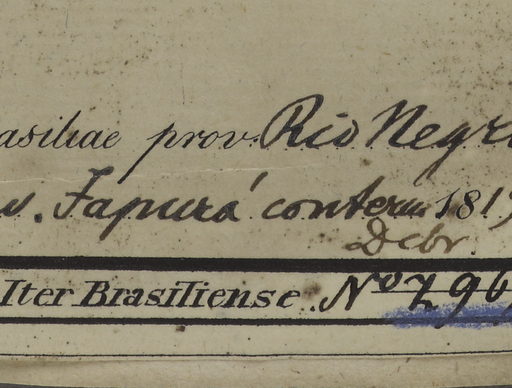 asiliae prov. Rio Negr
v. Japurá conterm 181
Debr.
Iter Brasiliense. No 296